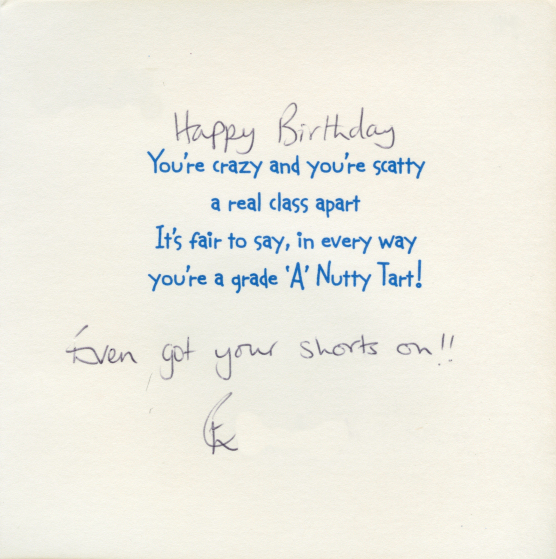 Happy Birthday
You're crazy and you're scatty
a real class apart
It's fair to say, in every way
you're a grade 'A' Nutty Tart!
Even got your shorts on!!